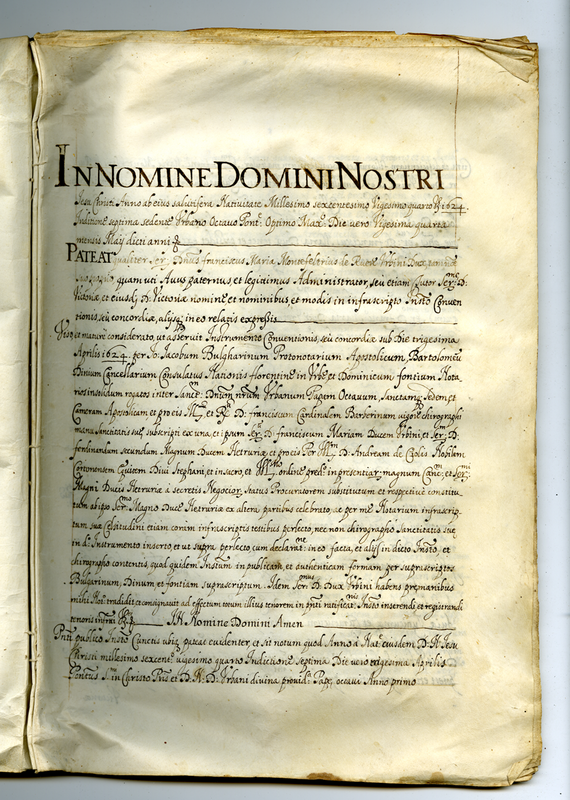 IN NOMINE DOMINI NOSTRI
Jesu Christi Anno ab eius salutifera Nativitate Millesimo sexcentesimo Vigesimo quarto 1624
Indictione septima sedente Urbano Octavo Pont. Optimo Max. Die vero Vigesima quarta
mensis Maij dicti anni
PATEAT qualiter Ser. Dnus franciscus Maria Montefeltrius de Ruere Urbini Dux
quam uti Avus paternus et legitimus Administrator, seu etiam tutor Ser.me D.
Victoriae et eiusd. D. Victoriae nomine et nominibus, et modis in infrascripto Insto Conven
tionis, seu concordiae, alijsq. in eo relatis expressis
et maturè considerato, ut asseruit Instrumento Conventionis, seù concordiae sub Die trigesima
Aprilis 1624. per Jo: Jacobum Bulgharinum Protonotarium Apostolicum, Bartolomeu
Dinum Cancellarium Consulatus Nationis florentinae in Urbe, et Dominicum fontium Nota
rios insolidum rogatos inter Sanct. Dnum nrum Urbanum Papam Octavum, Sanctamq. Sedem, et
Cameram Apostolicam et pro eis et D: franciscum Cardinalem Barberinum vigore chirographi
manu Sanctitatis suae subscripti ex una, et ipsum Ser. D. franciscum Mariam Ducem Urbini, et Ser. D:
ferdinandum secundum Magnum Ducem Hetruriae, et pro eis Per D: Andream de Ciolis Nobilem
Cortonensem Equitem Divi Stephani, et in sacro, et ordine pred. in presentiar. magnum Canc. et Ser.mi
Magni Ducis Hetruriae a secretis Negocior. Status Procuratorem substitutum et respectivè constitu
tum ab ipso Ser.mo Magno Duce Hetruriae ex altera partibus celebrato, ac per me Notarium infrascrip
tum sua Celsitudini etiam coram infrascriptis testibus perlecto, nec non chirographo Sanctitatis sue
in d. Instrumento inserto, et ut supra perlecto, cum declarat.ne in eo facta, et alijs in dicto Insto, et
chirographo contentis, quod quidem Instum in publicam, et authenticam formam per suprascriptos
Bulgarinum, Dinum et fontiam suprascriptum. Idem Ser.mus D. Dux Urbini habens pre manibus
mihi Not. tradidit et consignavit ad effectum totum illius tenorem in pnti ratificat.nis Insto inserendi et registrandi
tenoris infras IN Nomine Domini Amen
Pnti publico Insto Cunctis ubiq. pateat evidenter, et sit notum quod Anno à Nat. eiusdem D. N. Jesu
Christi millesimo sexcent. vigesimo quarto Indictione Septima Die vero trigesima Aprilis
Pontus S.mi in Christo Pris et D. N: D: Urbani divina provid. Pap. octavi Anno primo